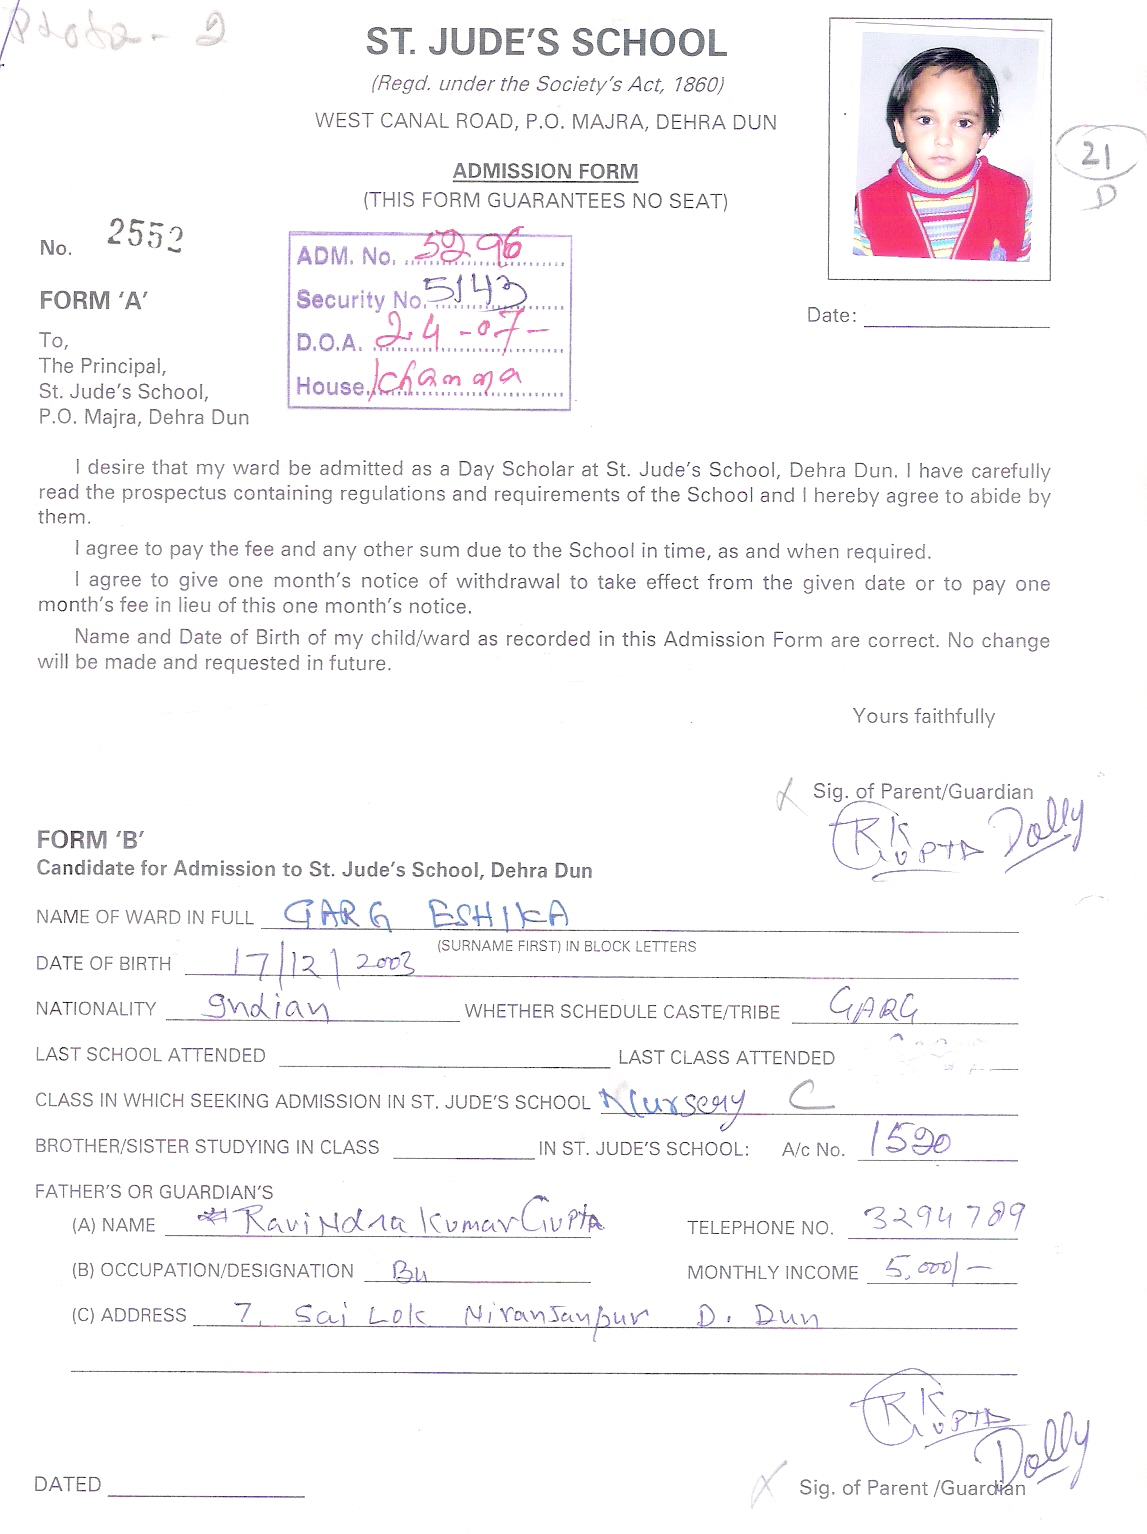 Photo - 2
ST. JUDE'S SCHOOL
(Regd. under the Society's Act, 1860)
WEST CANAL ROAD, P.O. MAJRA, DEHRA DUN
ADMISSION FORM
(THIS FORM GUARANTEES NO SEAT)
21
D
No. 2552
ADM. No. 5296
Security No. 5143
D.O.A. 2.4-07-
House
FORM 'A'
Date:
To,
The Principal,
St. Jude's School,
P.O. Majra, Dehra Dun
I desire that my ward be admitted as a Day Scholar at St. Jude's School, Dehra Dun. I have carefully
read the prospectus containing regulations and requirements of the School and I hereby agree to abide by
them.
I agree to pay the fee and any other sum due to the School in time, as and when required.
I agree to give one month's notice of withdrawal to take effect from the given date or to pay one
month's fee in lieu of this one month's notice.
Name and Date of Birth of my child/ward as recorded in this Admission Form are correct. No change
will be made and requested in future.
Yours faithfully
Sig. of Parent/Guardian
RK GUPTA Dolly
FORM 'B'
Candidate for Admission to St. Jude's School, Dehra Dun
NAME OF WARD IN FULL GARG ESHIKA
(SURNAME FIRST) IN BLOCK LETTERS
DATE OF BIRTH 17/12/2003
NATIONALITY Indian WHETHER SCHEDULE CASTE/TRIBE GARG
LAST SCHOOL ATTENDED LAST CLASS ATTENDED
CLASS IN WHICH SEEKING ADMISSION IN ST. JUDE'S SCHOOL Nursery C
BROTHER/SISTER STUDYING IN CLASS IN ST. JUDE'S SCHOOL: A/c No. 1520
FATHER'S OR GUARDIAN'S
(A) NAME Ravindra Kumar Gupta TELEPHONE NO. 3294789
(B) OCCUPATION/DESIGNATION Bu MONTHLY INCOME 5,000/-
(C) ADDRESS 7, Sai Lok Niranjanpur D. Dun
RK GUPTA
Dolly
DATED Sig. of Parent /Guardian